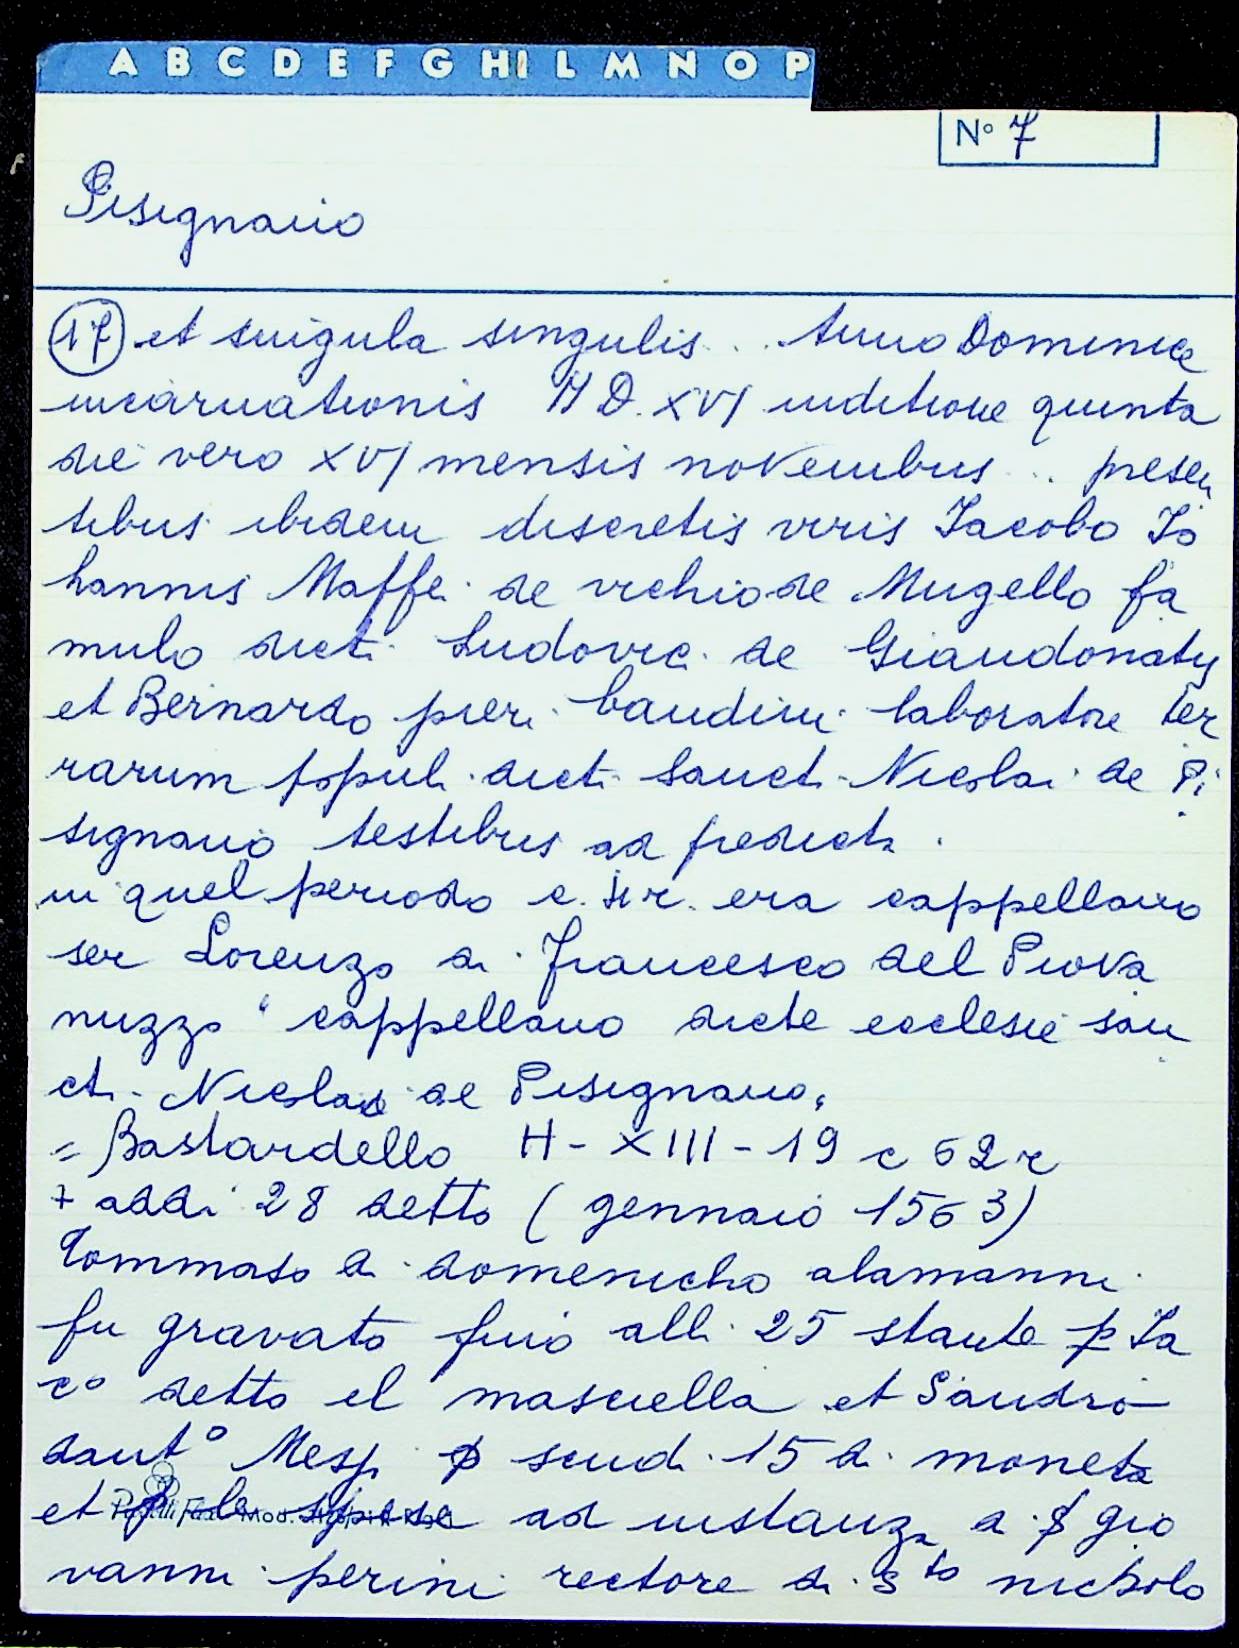 A B C D E F G HI L M N O P
N° 7
Pisignano
17 et singula singulis .. Anno Dominice
incarnationis MD.XVI inditione quinta
die vero XVI mensis novembris .. presen
tibus ibidem discretis viris Iacobo Io
hannis Maffei de vichio de Mugello fa
mulo dicti Ludovici de Giandonaty
et Bernardo pieri baudini laboratore ter
rarum populi dicti Sancti Nicolai de Pi
signano testibus ad predicta.
in quel periodo era cappellano
ser Lorenzo di Francesco del Piova
nuzzo "cappellano dicte ecclesie san
cti Nicolai de Pisignano,
= Bastardello H - XIII - 19 c 62 r
+ addi 28 detto (gennaio 1563)
Tommaso di domenicho alamanni
fu gravato fino alli 25 stante p Ia
c° detto el mascella et Sandro
dant° Mesp. p scudi 15 di moneta
et p le spese ad instanza di S gio
vanni perini rectore di S to nicholo